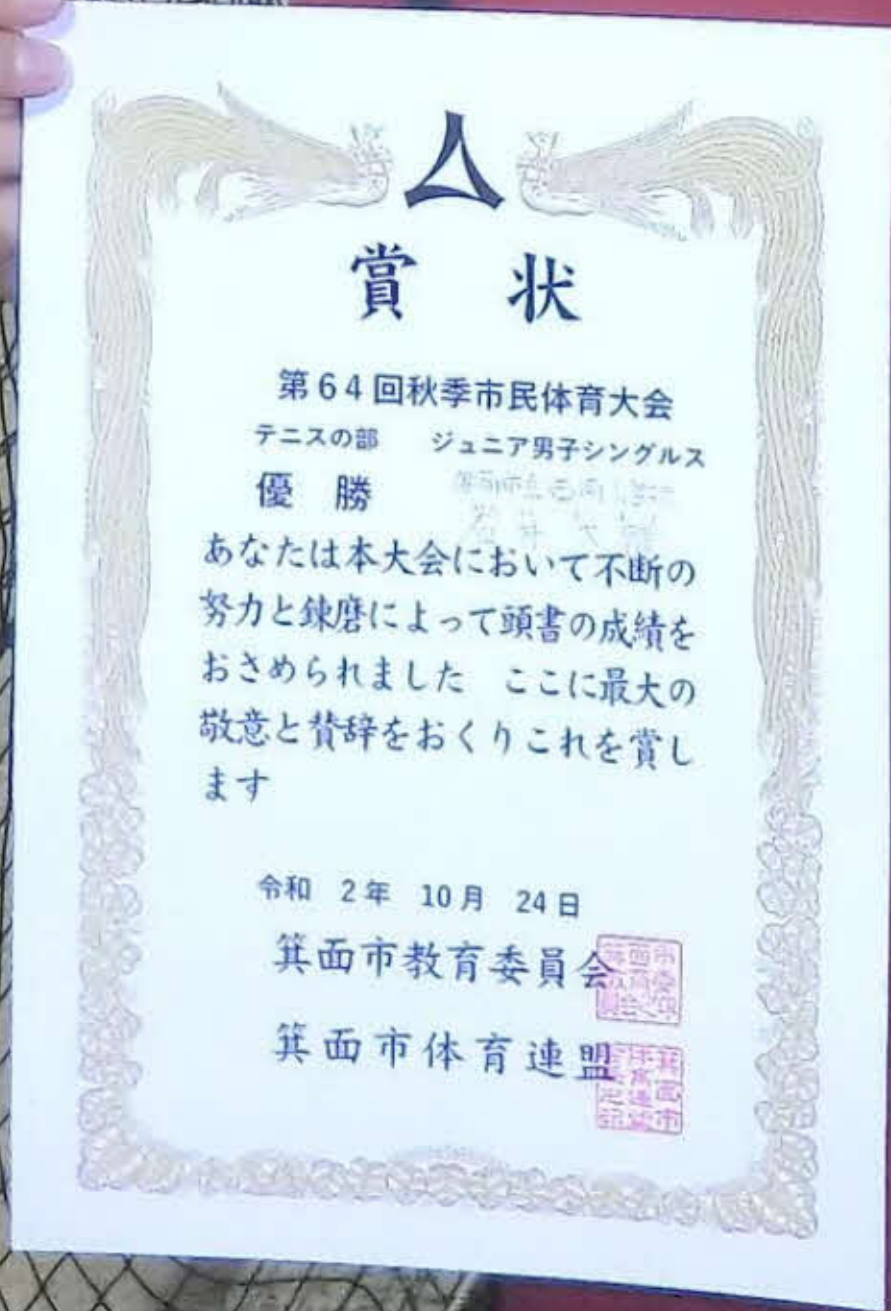 賞状
第64回秋季市民体育大会
テニスの部　ジュニア男子シングルス
優勝
あなたは本大会において不断の
努力と錬磨によって頭書の成績を
おさめられました　ここに最大の
敬意と賛辞をおくりこれを賞し
ます
令和　2年　10月　24日
箕面市教育委員会
箕面市体育連盟